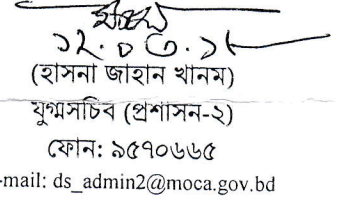 ১২.০৩.১৮
(হাসনা জাহান খানম)
যুগ্মসচিব (প্রশাসন-২)
ফোন: ৯৫৭০৬৬৫
-mail: ds_admin2@moca.gov.bd